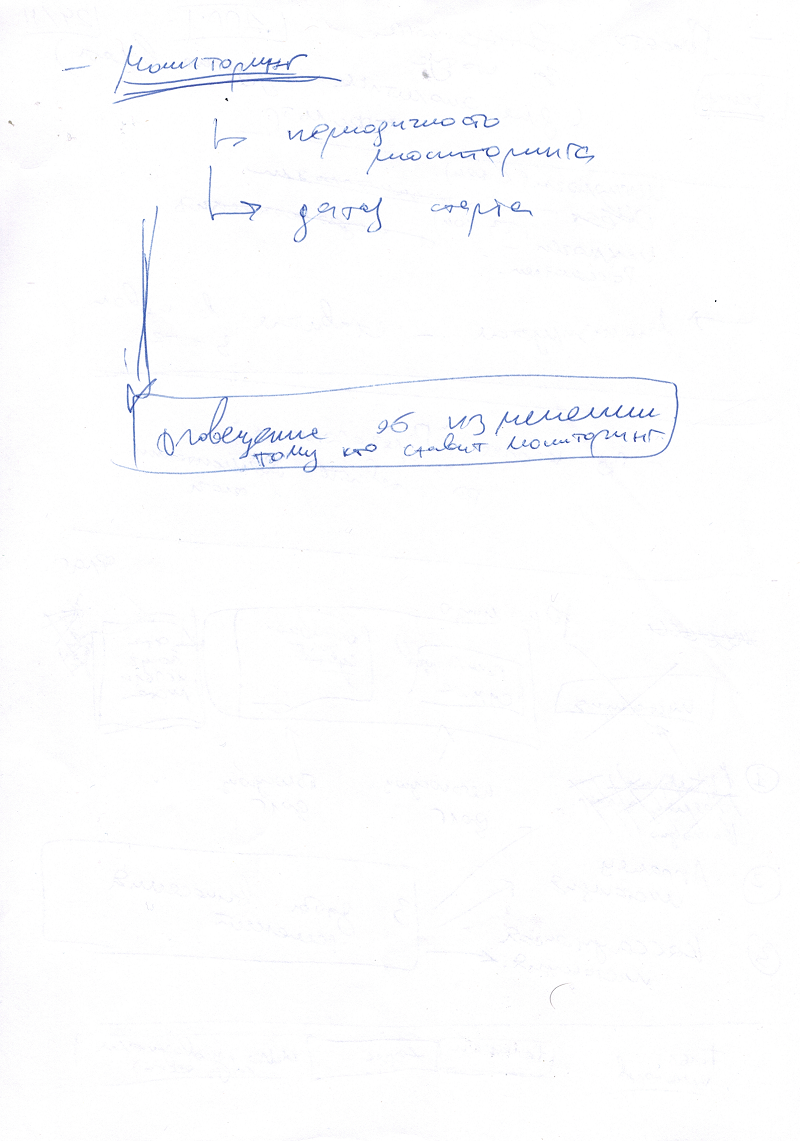 – Мониторинг
периодичность
мониторинга
дата старта
оповещение об изменении
тому кто ставит мониторинг